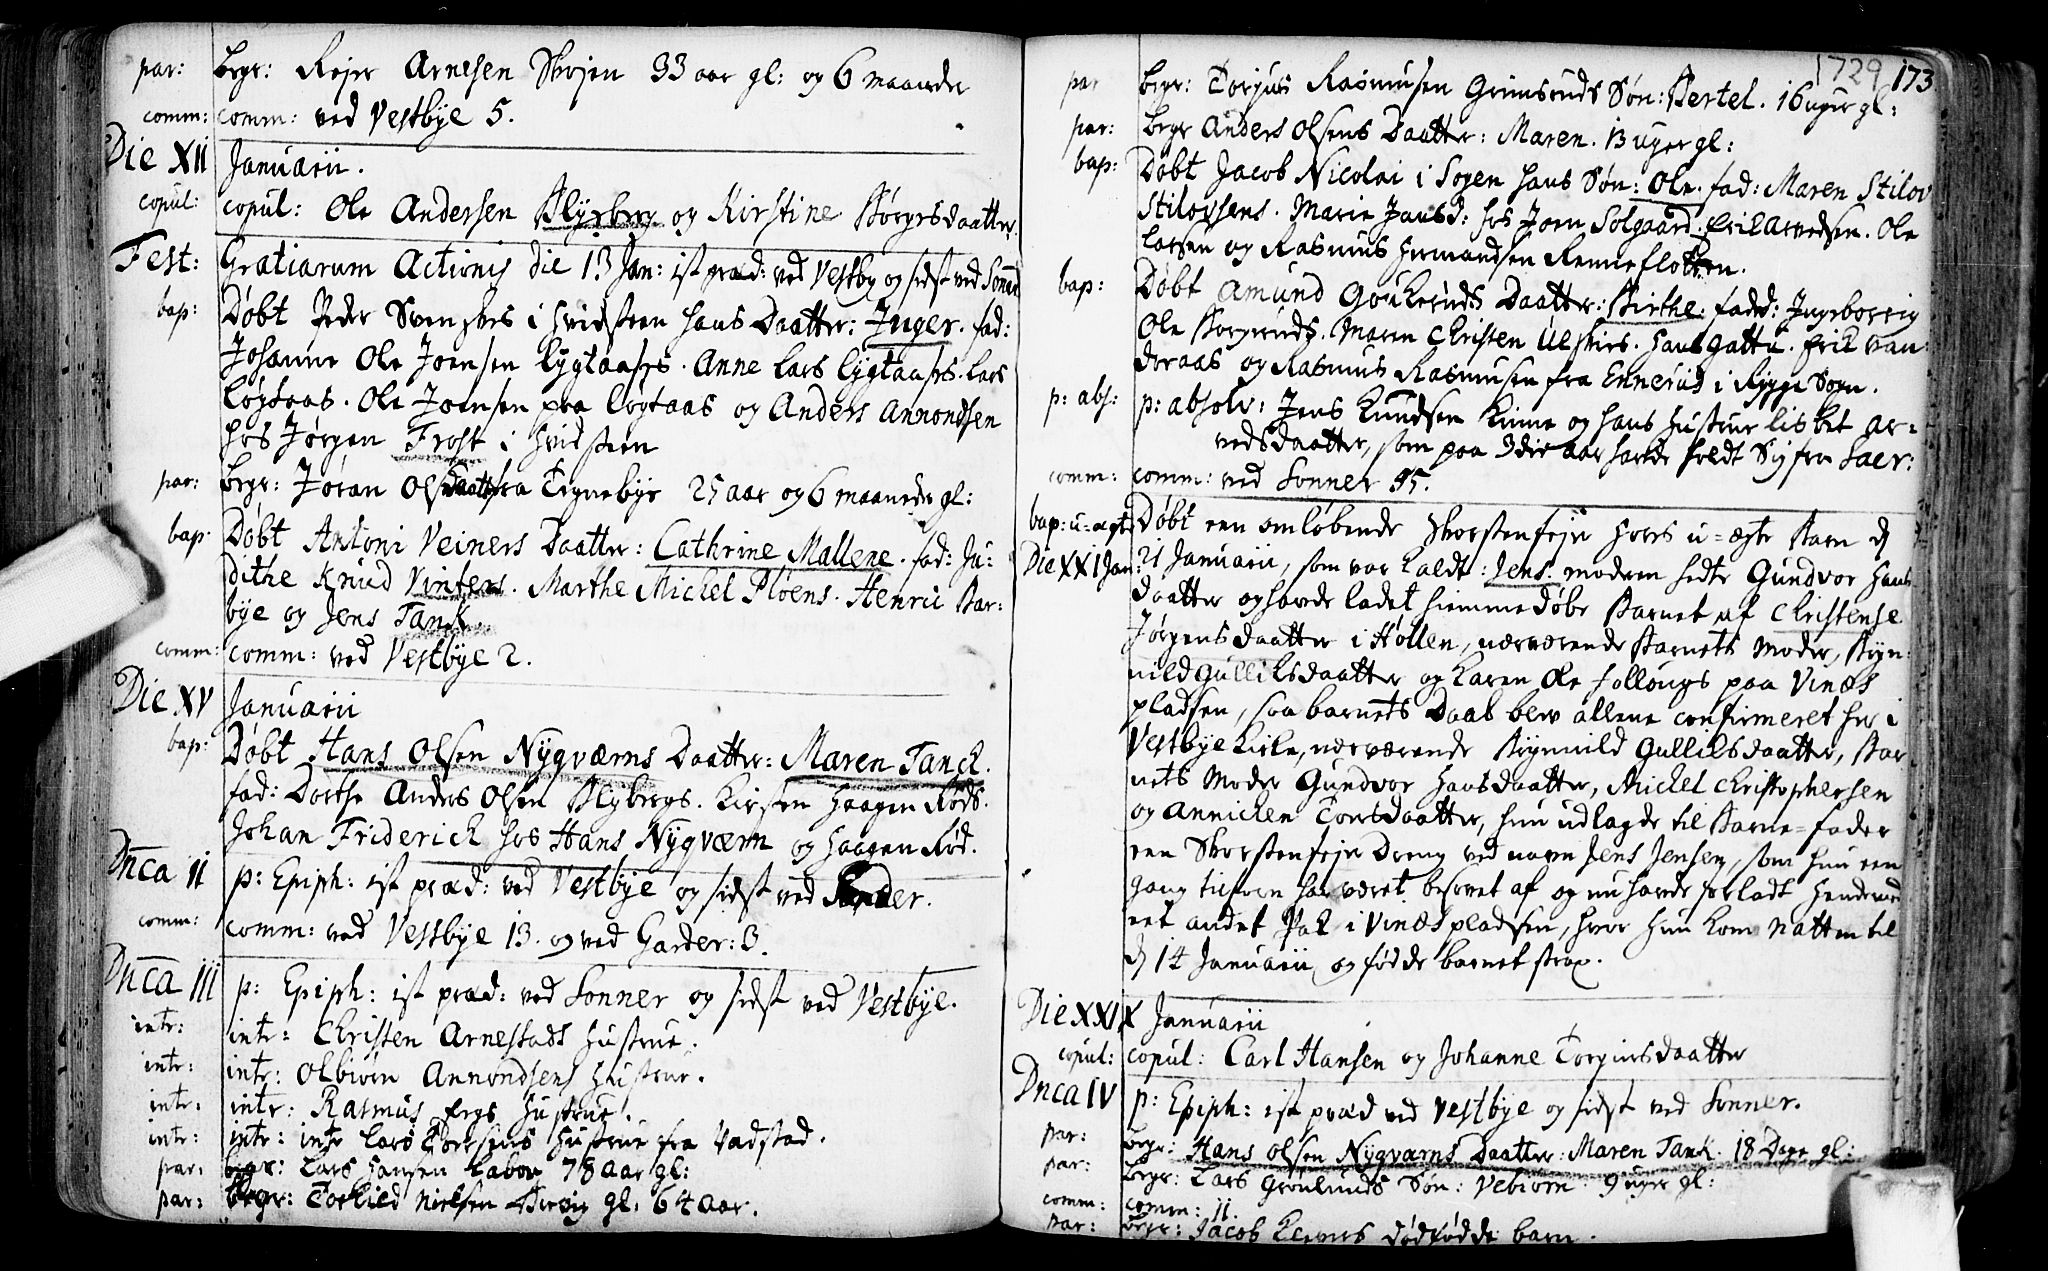 par: begr: Rejer Arnesen Skojen 33 aar gl: og 6 maaneder
comm: comm: ved Vestbÿe 5.
Die XII Januarii.
copul: copul: Ole Andersen Blÿxberg og Kirstine Børgesdaatter.
Fest: Gratiarum Actionis die 13 Jan: ist præd: ved Vestby og sidst ved Sonner
bap: Døbt Peder Svenskes i Hvidsteen hans Daatter: Inger. fad:
Johanne Ole Joensen Lygtaases. Anne Lars Lygtaases. Lars
Løgtaas. Ole Joensen paa Løgtaas og Anders Annondsen
hos Jørgen Frost i Hvidsteen
par: begr: Jøran Olsdaatter fra Tegnebÿe 25 aar og 6 maaneder gl:
bap: Døbt Antoni Veiners Daatter: Cathrine Mallene. fad: Ju-
dithe Knud Vinters. Marthe Michel Pløens. Henric Bar-
bÿe og Jens Tank.
comm: comm: ved Vestbÿe 2.
Die XV Januarii
bap: Døbt Hans Olsen Nÿqværns Daatter: Maren Tanck.
fad: Dorthe Anders Olsen Blybergs. Kirsten Haagen Røds.
Johan Friderich hos Hans Nÿqværn og Haagen Rød.
Dnca II p: Epiph: ist præd: ved Vestbÿe og sidst ved
comm: comm: ved Vestbÿe 13. og ved Garder: 3.
Dnca III p: Epiph: ist præd: ved Sonner og sidst ved Vestbÿe.
intr: intr: Christen Arnestads Hustrue.
intr: intr: Olbiørn Annondsens Hustrue.
intr: intr: Rasmus Hustrue.
intr: intr: intr Lars Hustrue fra Vadstad.
par: begr: Lars Hansen Labou 78 aar gl:
par: begr: Torkild Nielsen gl: 64 aar.
1729 173
par begr: Torjus Rasmusen Grimsruds Søn: Bertel. 16 uger gl:
par: begr Anders Olsens Daatter: Maren. 13 uger gl:
bap: Døbt Jacob Nicolai i Sogen hans Søn: Ole. fad: Maren Stilov
Stilovsens. Marie Jansd: hos Joen Solgaard. Eril Arvedsen. Ole
Larsen og Rasmus Hermandsen Renneflotten.
bap: Døbt Amund Goukeruds Daatter: Birthe. fadd: Ingeborrig
Ole Borgeruds. Maren Christen Ulskies. Hans Gattu. Erik Van-
deraas og Rasmus Rasmusen fra Ennerud i Rÿgge Sogn.
p: abs: p: absolv: Jens Knudsen Kinne og hans Hustrue Lisbet Ar-
vedsdaatter, som paa 3die aar havde holdt Sig fra Sacr:
comm: comm: ved Sonner 95.
bap: u-ægte Døbt een omløbende Skorsteenfejer Hores u-ægte Barn d
Die XXI Jan: 21 Januarii, som var kaldt: Jens. moderen hedte Gundvor Hans
daatter og havde ladet hiemme døbe Barnet af Christense
Jørgensdaatter i Hollen, nærværende Barnets Moder, Bryn-
nild Gulliksdaatter og Karen Ole Follougs paa Vinæs
pladsen, saa barnets Daab blev allene confirmeret her i
Vestbÿe Kirke, nærværende Brynnild Gulliksdaatter, Bar
nets Moder Gundvor Hansdaatter, Michel Christophersen
og Annichen Toresdaatter, hun udlagde til Barne-fader
een Skorsteenfejer Dreng ved navn Jens Jensen, som hun een
gang tilforn har været besovet af og nu havde forladt hende med
eet andet Pak i Vinæs pladsen, hvor hun kom Natten til
d 14 Januarii, og fødde barnet strax.
Die XXIX Januarii
copul: copul: Carl Hansen og Johanne Torgiursdaatter
Dnca IV p: Epiph: ist præd ved Vestbÿe og sidst ved Sonner.
par: begr: Hans Olsen Nÿqværns Daatter: Maren Tank. 18 Dage gl:
par: begr: Lars Grønlunds Søn: Vebiørn. 9 uger gl:
comm: comm: 11.
par: begr: Jacob dødfødde barn.